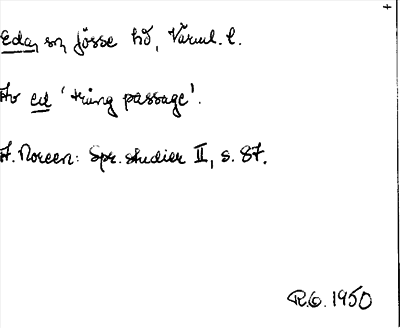 Eda, sn, Jösse hd, Värml. l.
Av ed 'trång passage'.
A. Noreen: Spr. studier II, s. 87.
R.G. 1950